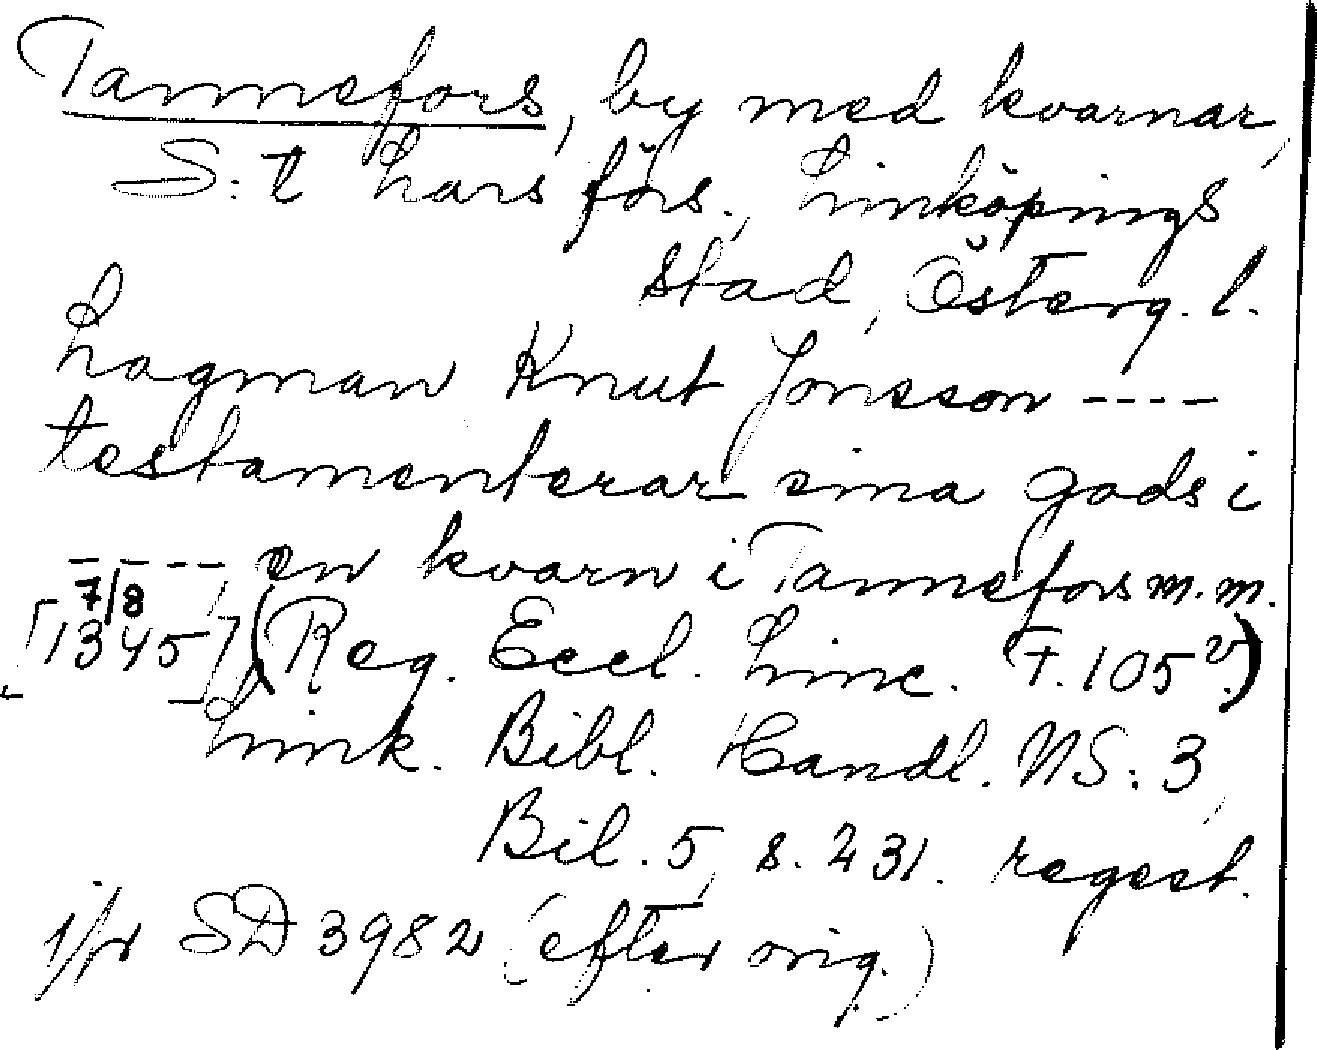 Tannefors, by med kvarnar,
S:t Lars förs., Linköpings
stad, Österg. l.
Lagman Knut Jonsson ----
testamenterar sina gods i
-----, en kvarn i Tannefors m.m.
[7/8
1345] (Reg. Eccl. Linc. F. 105v.)
Link. Bibl. Handl. NS: 3,
Bil. 5, s. 231. regest.
jfr SD 3982 (efter orig.)